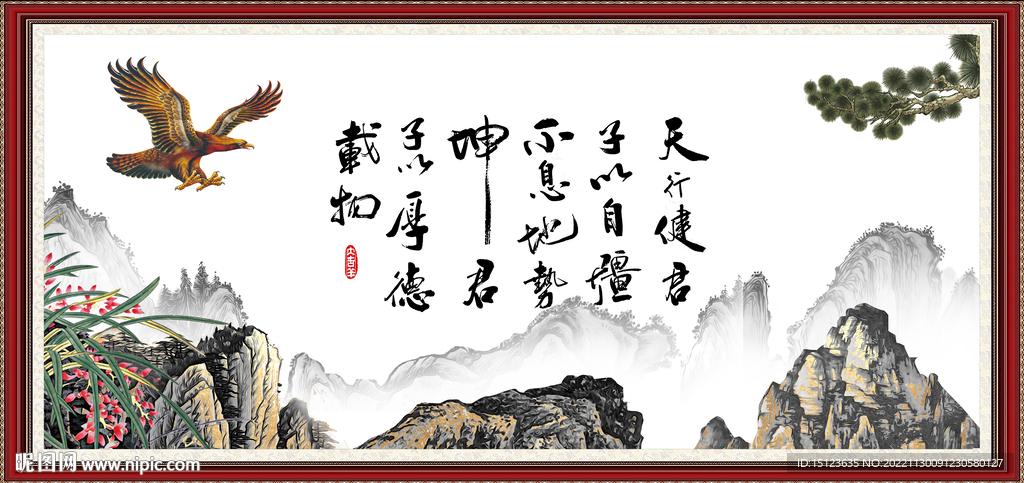 天行健君
子以自彊
不息地勢
坤君
子以厚德
載物
昵图网 www.nipic.com
ID:15123635 NO:20221130091230580127